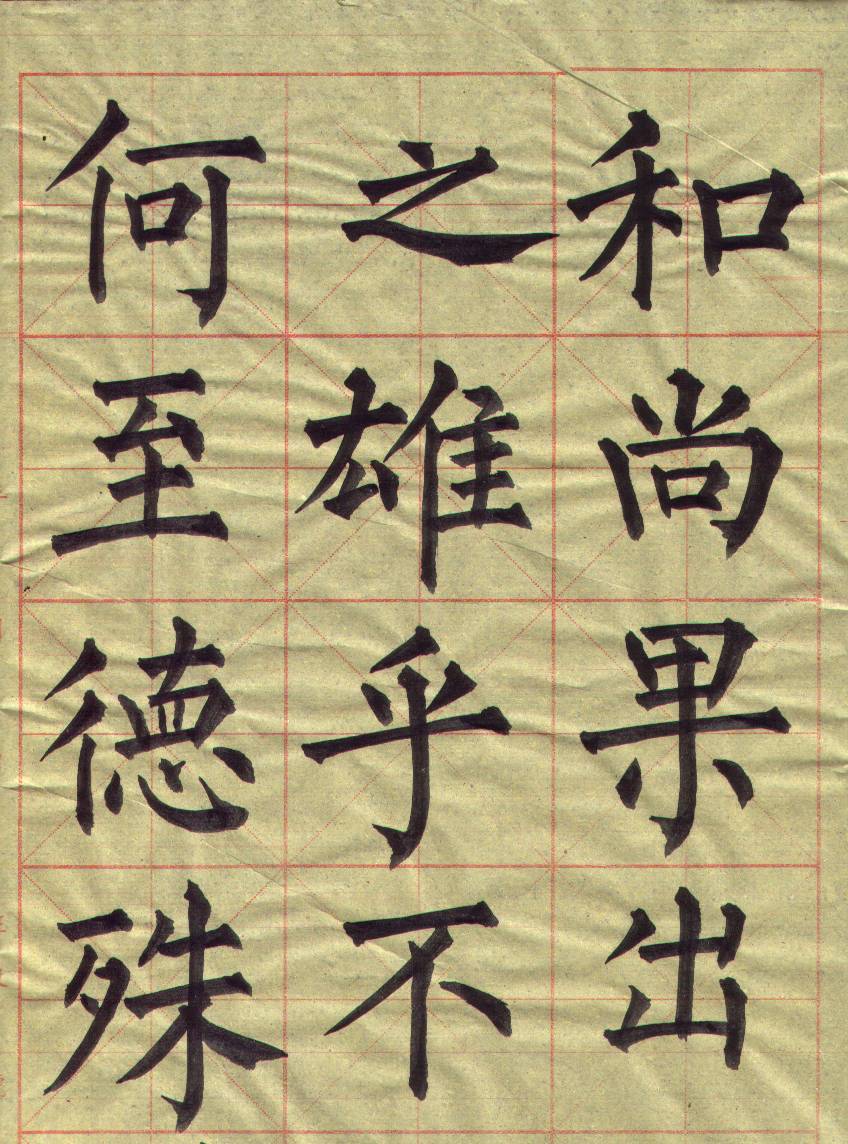 和尚果出
之雄乎不
何至德殊